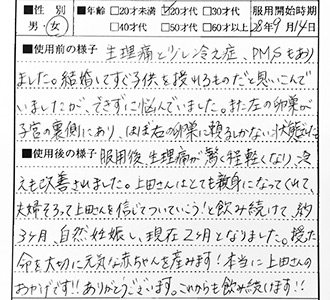 ■性別 ■年齢 □20才未満 ☑20才代 □30才代 服用開始時期
男・女 □40才代 □50才代 □60才以上 28年9月14日
■使用前の様子 生理痛と少し冷え症、PMSもあり
ました。結婚してすぐ子供を授れるものだと思いこんで
いましたが、できずに悩んでいました。また左の卵巣が
子宮の裏側にあり、ほぼ右の卵巣に頼るしかない状態でした。
■使用後の様子 服用後、生理痛が驚く程軽くなり、冷
えも改善されました。上田さんはとても親身になってくれて、
夫婦そろって上田さんを信じてついていこう!と飲み続けて、約
3ヶ月、自然妊娠し、現在2ヶ月となりました。授た
命を大切に元気な赤ちゃんを産みます!本当に上田さんの
おかげです!!ありがとうございます。これからも飲み続けます!!